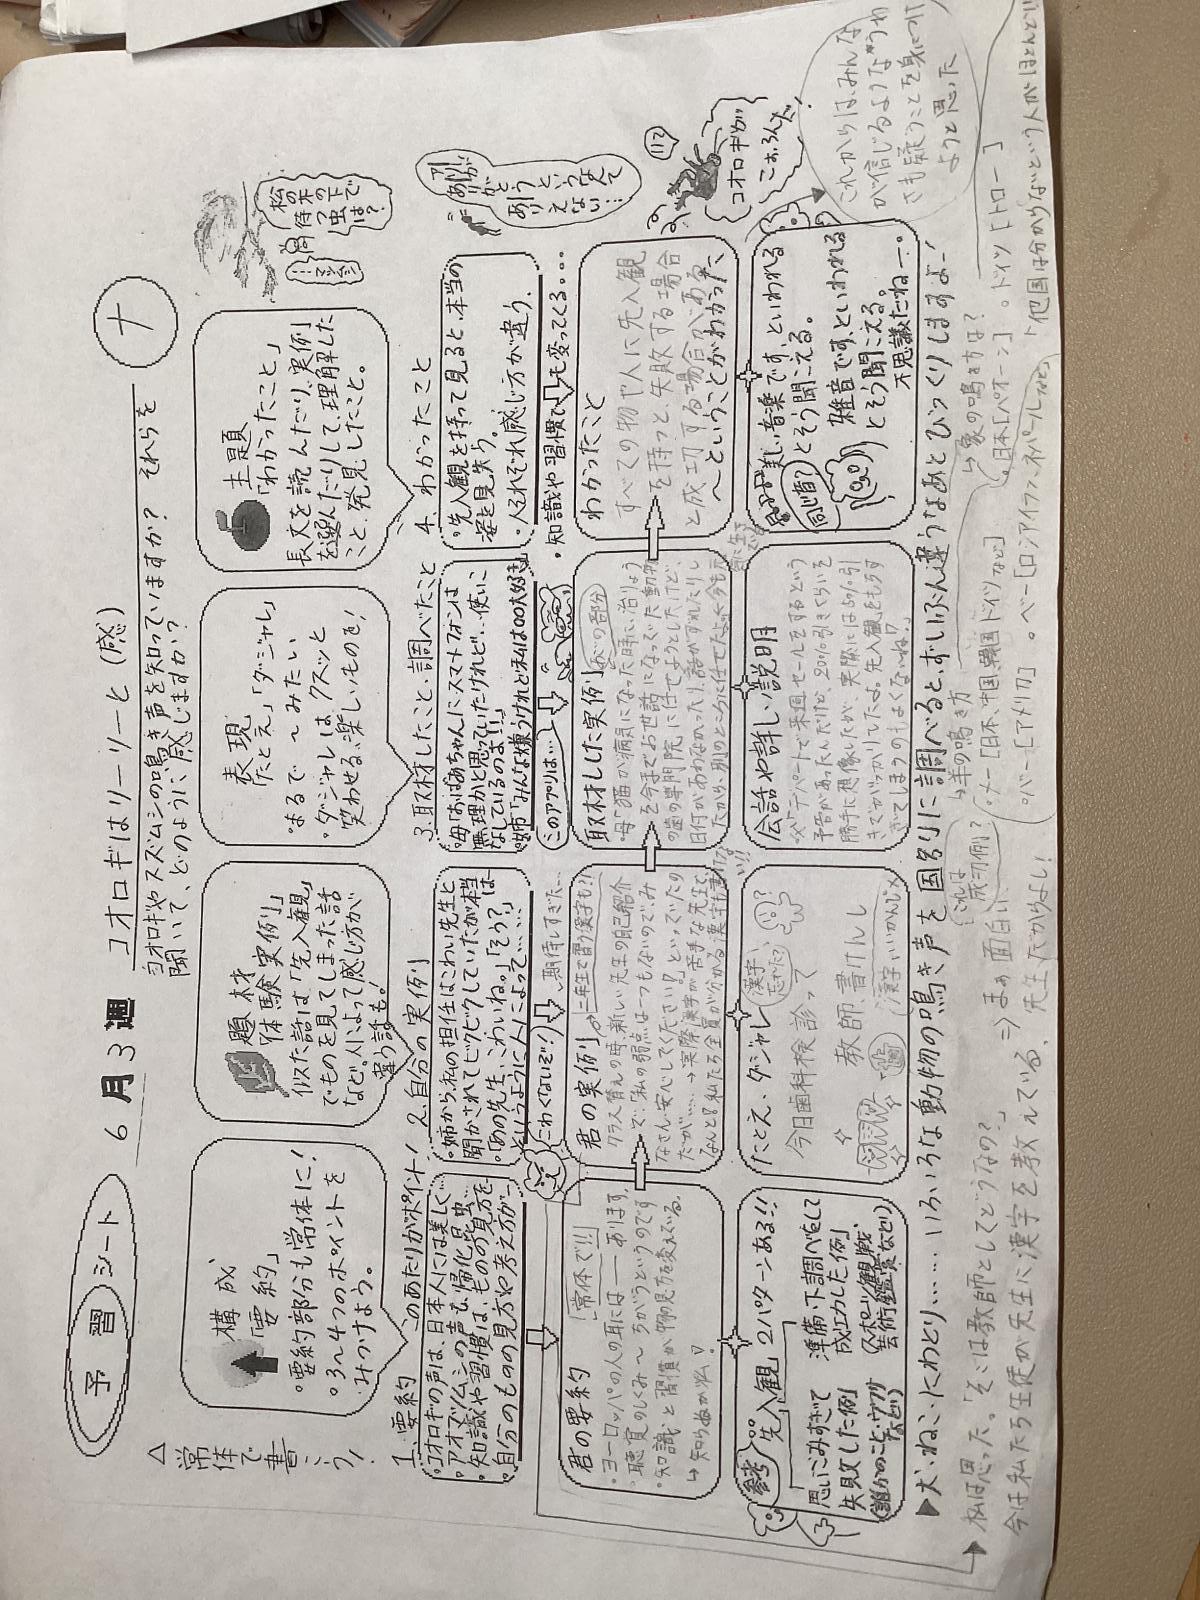 予習シート
6月3週
コオロギはリーリーと(感)
コオロギやスズムシの鳴き声を知っていますか? それらを
聞いて、どのように、感じますか?
ナ
△常体で書こう!
構成
「要約」
・要約部分も常体に!
・3〜4つのポイントを
みつけよう。
題材
「体験実例」
似た話は、「先入観」
でものを見てしまった話
など。人によって感じ方が
違う話も!
表現
「たとえ」「ダジャレ」
・まるで〜みたい
・ダジャレは、クスッと
笑わせる、楽しいものを!
主題
「わかったこと」
長文を読んだり、実例
を選んだりして、理解した
こと、発見したこと。
松の木の下で
待つ虫
は?
1. 要約
このあたりがポイント!
・コオロギの声は、日本人には美しく…
・アオマツムシの声も、帰化昆虫…
・知識や習慣は、ものの見方を…
・自分のものの見方や考え方が…
2. 自分の実例
・姉から、私の担任はこわい先生と
聞かされてビクビクしていたが本当は
・「あの先生、こわいね。」「そう?」
というように人によって……
こわくないぞ!
3. 取材したこと・調べたこと
・母「おばあちゃんに、スマートフォンは
無理かと思っていたけれど…使いこ
なしているのよ!!」
・姉「みんな嫌うけれど私は○○大好き」
このアプリは…
4. わかったこと
・先入観を持って見ると、本当の
姿を見失う。
・人それぞれ感じ方が違う。
・知識や習慣でモ変ってくる。。。
ありがとうという
なんて
ありえない…
コオロギが
ころんだ!
君の要約
「常体で!!」
・ヨーロッパの人の耳には――あります。
・聴覚のしくみ〜ちがうというのです
・知識と習慣が物の見方を変えている。
君の実例
二年生で習う漢字も?!
期待しすぎた…
クラス替えの時、新しい先生の自己紹介
で、「私の弱点は一つもないのでみ
なさん、安心してください!?」といっていたの
だが……→実際漢字が苦手な先生で、
なんと!?私たち全員が分かる漢字も書けない!!
取材した実例
母「猫が病気になった時に、治りょう
を今までお世話になっていた動物
の歯の専門院に任せようとしたけど、
わかったこと
すべての物や人に先入観
を持つと、失敗する場合
と成功する場合がある
〜ということがわかった。
参考
"先入観"
2パターンある!!
思いこみすぎて
失敗した例
(誰かのこと・ウワサ
など)
準備・下調べをして
成功した例
(スポーツ観戦、
芸術鑑賞など)
たとえ・ダジャレ
漢字
忘れた?
今日歯科検診って
教師書けんし
会話や詳しい説明
父「デパートで来週、セールをするという
予告があったんだけど、20%引きくらいを
勝手に想像したが、実際には5%引
きでがっかりしてたよ。先入観をもちす
ぎてしまうのもよくないね!?
美しい音楽です、といわれる
とそう聞こえる。
雑音です、といわれる
とそう聞こえる。
不思議だねー。
同じ音?
これからは、みんな
が信じるようなうわ
さも疑うことを身につけ
ようと思った
▶犬・ねこ・にわとり……いろいろな動物の鳴き声を国別に調べると、ずいぶん違うなあとびっくりしますよー!
私は思った。「そこは教師としてどうなの?」
今は私たち生徒が先生に漢字を教えている、先生だからよし!
これは
成功例?
⇒まあ面白い
↳羊の鳴き方
。メー[日本、中国、韓国、ドイツなど]
。バー[アメリカ]
。ベー[ロシア、イラン、ネパールなど]
↳象の鳴き方は?
。日本[ペオーン]。ドイツ[トロー]
「他国は分からないという人がほとんど!!